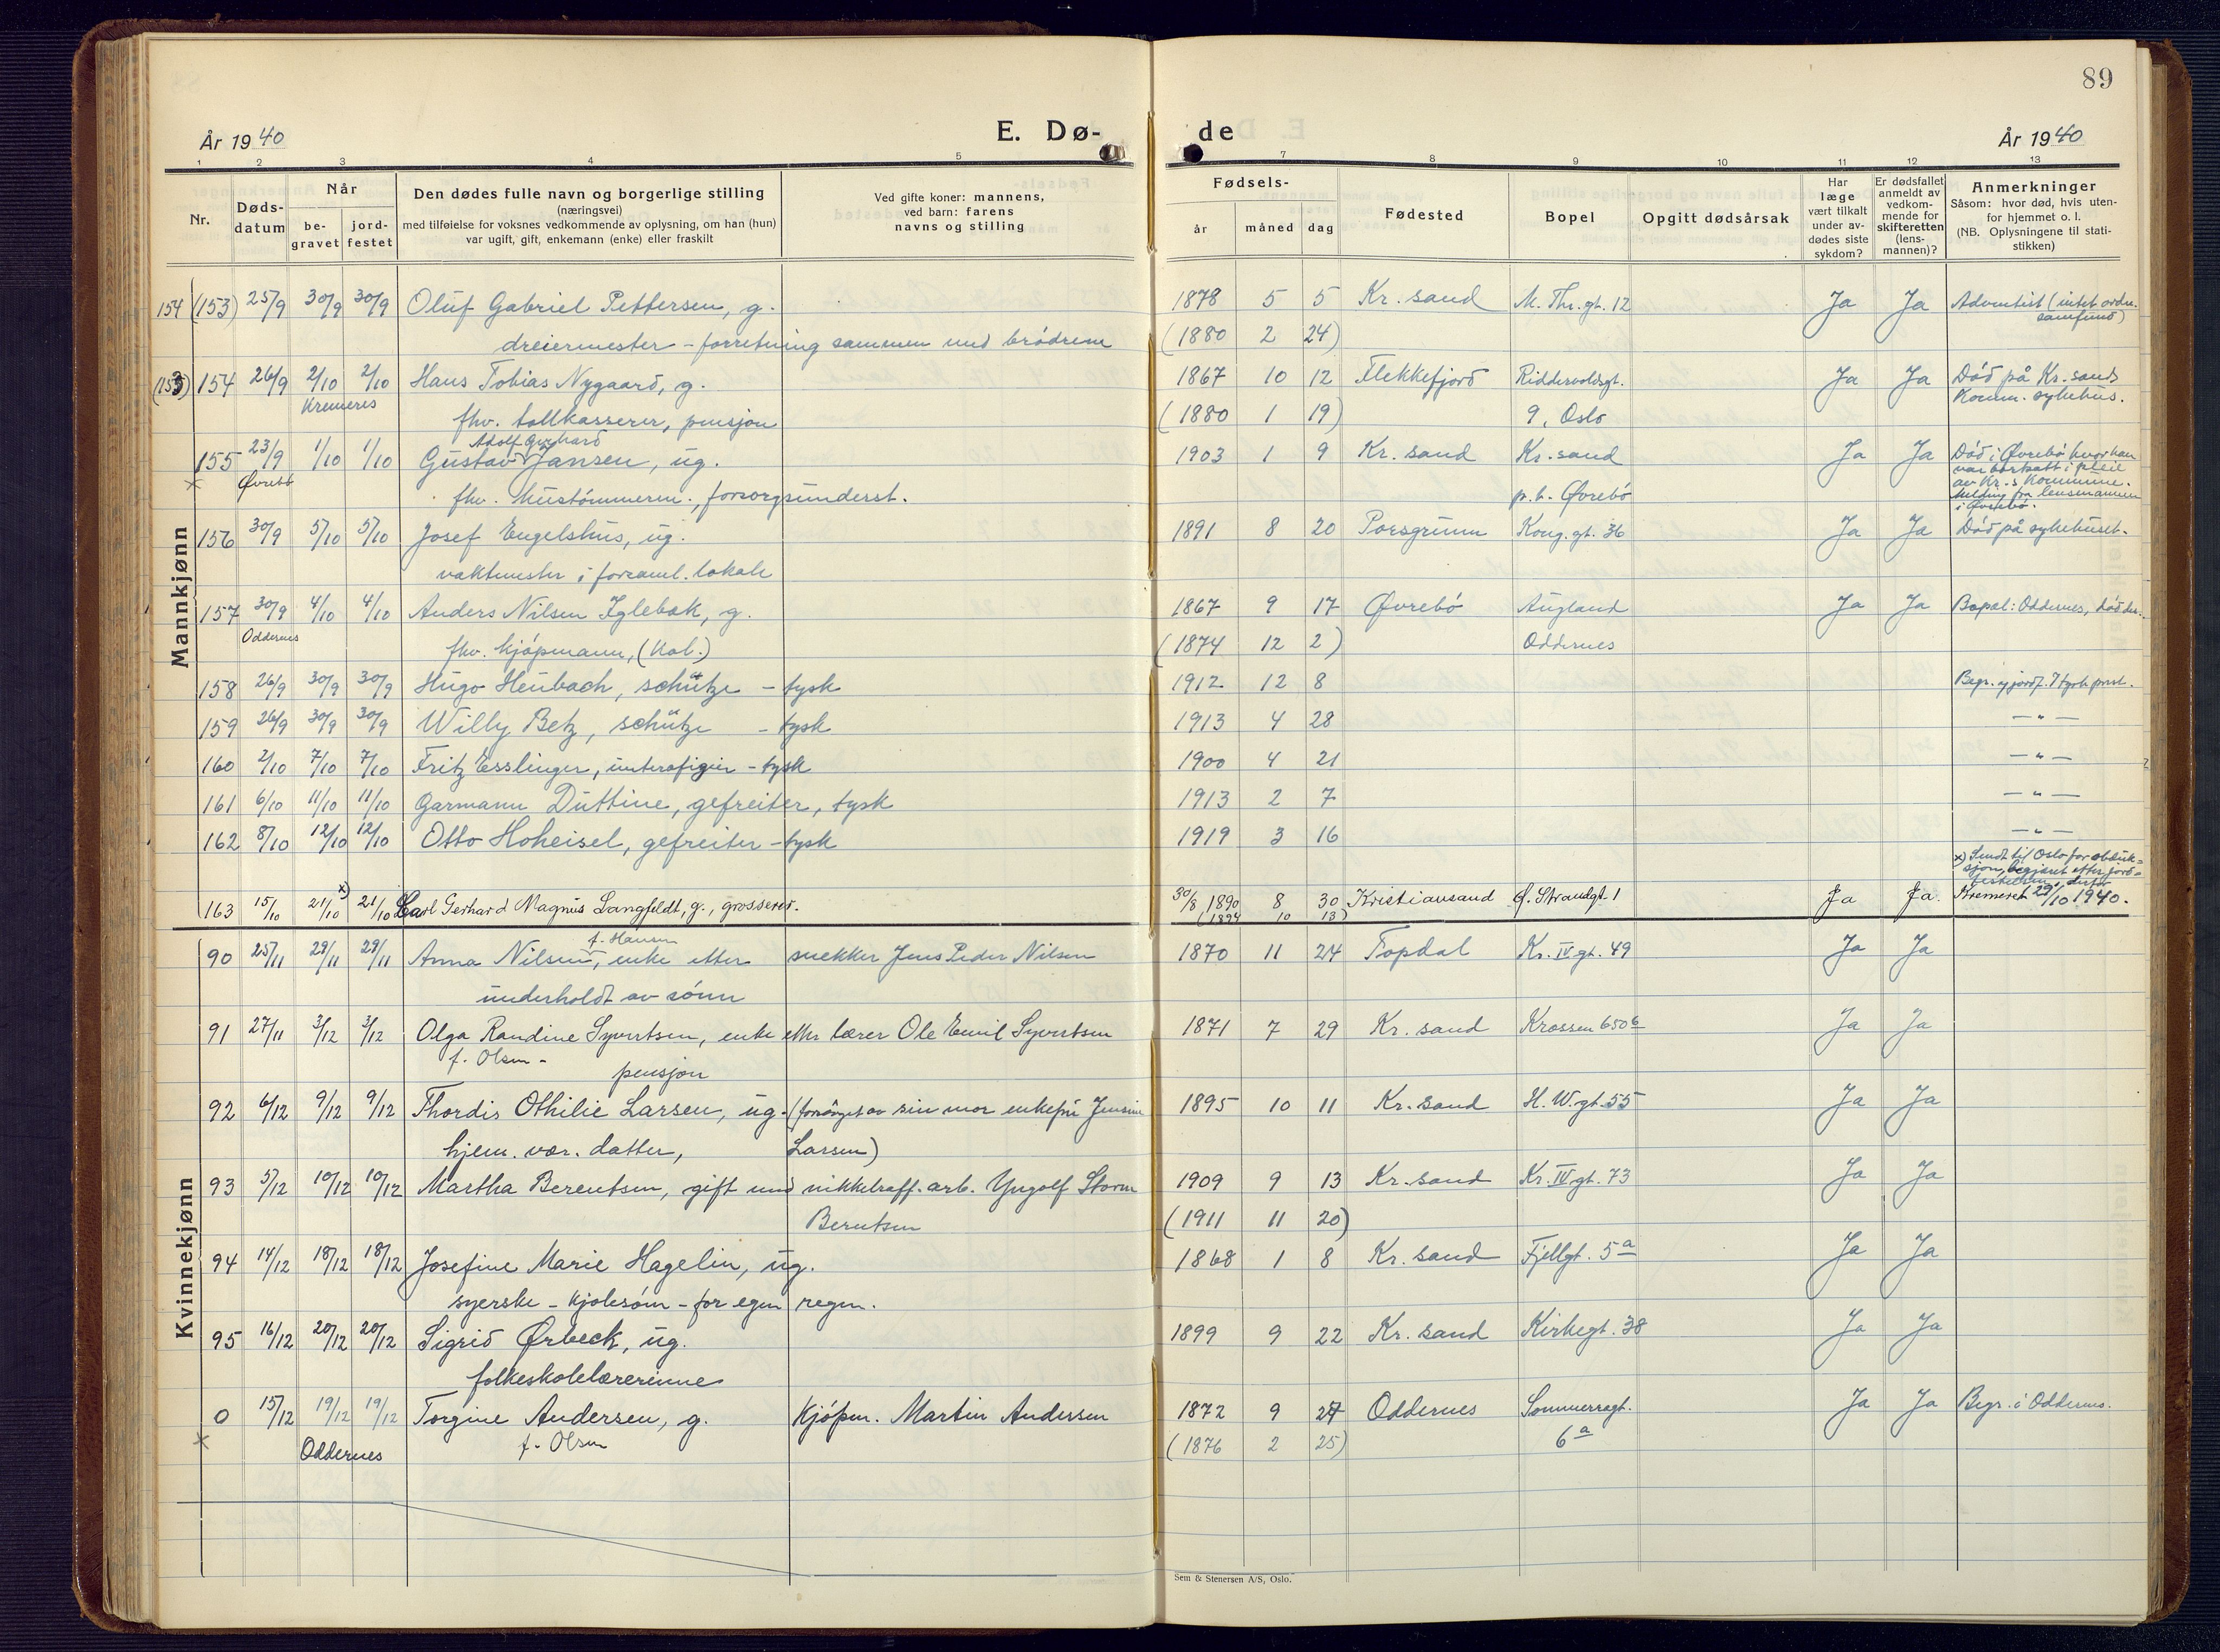 89
År 1940
E. Dø-
de
År 1940
1 2 3 4 5 7 8 9 10 11 12 13
Nr.
Døds-
datum
Når
be-
gravet
jord-
festet
Den dødes fulle navn og borgerlige stilling
(næringsvei)
med tilføielse for voksnes vedkommende av oplysning, om han (hun)
var ugift, gift, enkemann (enke) eller fraskilt
Ved gifte koner: mannens,
ved barn: farens
navns og stilling
Fødsels-
år måned dag
Fødested
Bopel
Opgitt dødsårsak
Har
læge
vært tilkalt
under av-
dødes siste
sykdom?
Er dødsfallet
anmeldt av
vedkom-
mende for
skifteretten
(lens-
mannen)?
Anmerkninger
Såsom: hvor død, hvis uten-
for hjemmet o. l.
(NB. Oplysningene til stati-
stikken)
Mannkjønn
154 (153) 25/9 30/9 30/9 Oluf Gabriel Pettersen, g. 1878 5 5 Kr. sand M. Thr. gt. 12 Ja Ja Adventist (intet ordn.
samfund)
dreiermester - forretning sammen med brödrene (1880 2 24)
(153) 154 26/9 2/10 2/10 Hans Tobias Nygaard, g. 1867 10 12 Flekkefjord Riddervoldsgt. Ja Ja Död på Kr. sands
Kremeres Komm. sykehus.
fhv. tollkasserer, pensjon (1880 1 19) 9, Oslo
Adolf Gerhard
155 23/9 1/10 1/10 Gustav Jansen, ug. 1903 1 9 Kr. sand Kr. sand Ja Ja Död i Øvrebö hvor han
x Øvrebö var bortsatt i pleie
av Kr. s Kommune.
fhv. hustömmerm., forsorgsunderst. p.t. Øvrebö Melding fra lensmannen
i Øvrebö.
156 30/9 5/10 5/10 Josef Engelshus, ug. 1891 8 20 Porsgrunn Kong. gt. 36 Ja Ja Död på sykehuset.
vaktmester i forsaml. lokale
157 30/9 4/10 4/10 Anders Nilsen Iglebæk, g. 1867 9 17 Øvrebö Augland Ja Ja Bopel: Oddernes, död der.
Oddernes fhv. kjöpmann, (Kol.) (1874 12 2) Oddernes
158 26/9 30/9 30/9 Hugo Heubach, schütze - tysk 1912 12 8 Begr. og jordf. 7 tysk prest.
159 26/9 30/9 30/9 Willy Betz, schütze - tysk 1913 4 28 — " —
160 2/10 7/10 7/10 Fritz Esslinger, unterofizier - tysk 1900 4 21 — " —
161 6/10 11/10 11/10 Garmann Duttine, gefreiter, tysk 1913 2 7 — " —
162 8/10 12/10 12/10 Otto Hoheisel, gefreiter - tysk 1919 3 16 — " —
x) Sendt til Oslo for obduk=
sjon, begjæret etter jord=
festelsen, derfor
163 15/10 21/10 x) 21/10 Carl Gerhard Magnus Langfeldt, g., grosserer. 30/8 1890 8 30 Kristiansand Ø. Strandgt. 1 Ja Ja. Kremeret 29/10 1940.
(1894 10 13)
Kvinnekjønn
f. Hansen
90 25/11 29/11 29/11 Anna Nilsen, enke etter snekker Jens Peder Nilsen 1870 11 24 Topdal Kr. IV gt. 49 Ja Ja
underholdt av sönn
91 27/11 3/12 3/12 Olga Randine Syvertsen, enke etter lærer Ole Emil Syvertsen 1871 7 29 Kr. sand Krossen 650 b Ja Ja
f. Olsen - pensjon
92 6/12 9/12 9/12 Thordis Othilie Larsen, ug. (forsörget av sin mor enkefru Jensine 1895 10 11 Kr. sand H. W. gt. 55 Ja Ja
hjem. vær. datter, Larsen)
93 5/12 10/12 10/12 Martha Berentsen, gift med nikkelraff. arb. Yngolf Storm 1909 9 13 Kr. sand Kr. IV gt. 73 Ja Ja
Berentsen (1911 11 20)
94 14/12 18/12 18/12 Josefine Marie Hagelin, ug. 1868 1 8 Kr. sand Fjellgt. 5 a Ja Ja
syerske - kjolesöm - for egen regn.
95 16/12 20/12 20/12 Sigrid Ørbeck, ug. 1899 9 22 Kr. sand Kirkegt. 38 Ja Ja
folkeskolelærerinne
0 15/12 19/12 19/12 Torgine Andersen, g. Kjöpm. Martin Andersen 1872 9 27 Oddernes Sommerrogt. Ja Ja Begr. i Oddernes.
x Oddernes f. Olsen (1876 2 25) 6 a
Sem & Stenersen A/S, Oslo.